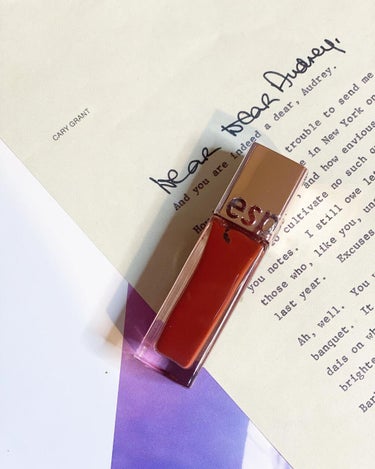 CARY GRANT
Dear Dear Audrey,
And you are indeed a dear, Audrey.
trouble to send me
e in New York on
and how envious
cultivate no such
Ho
I still owe
you notes.
those who, like you, un
last year. Excuses
Ah, well. You
banquet. It
dais on wh
brighte
Bar
esp